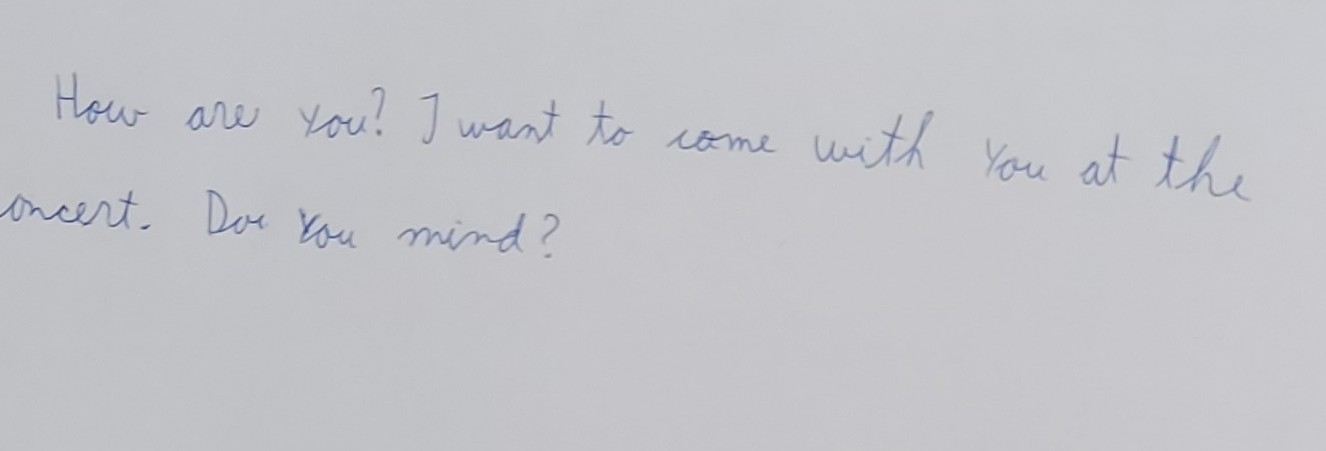 How are you? I want to come with You at the
oncert. Doe You mind?